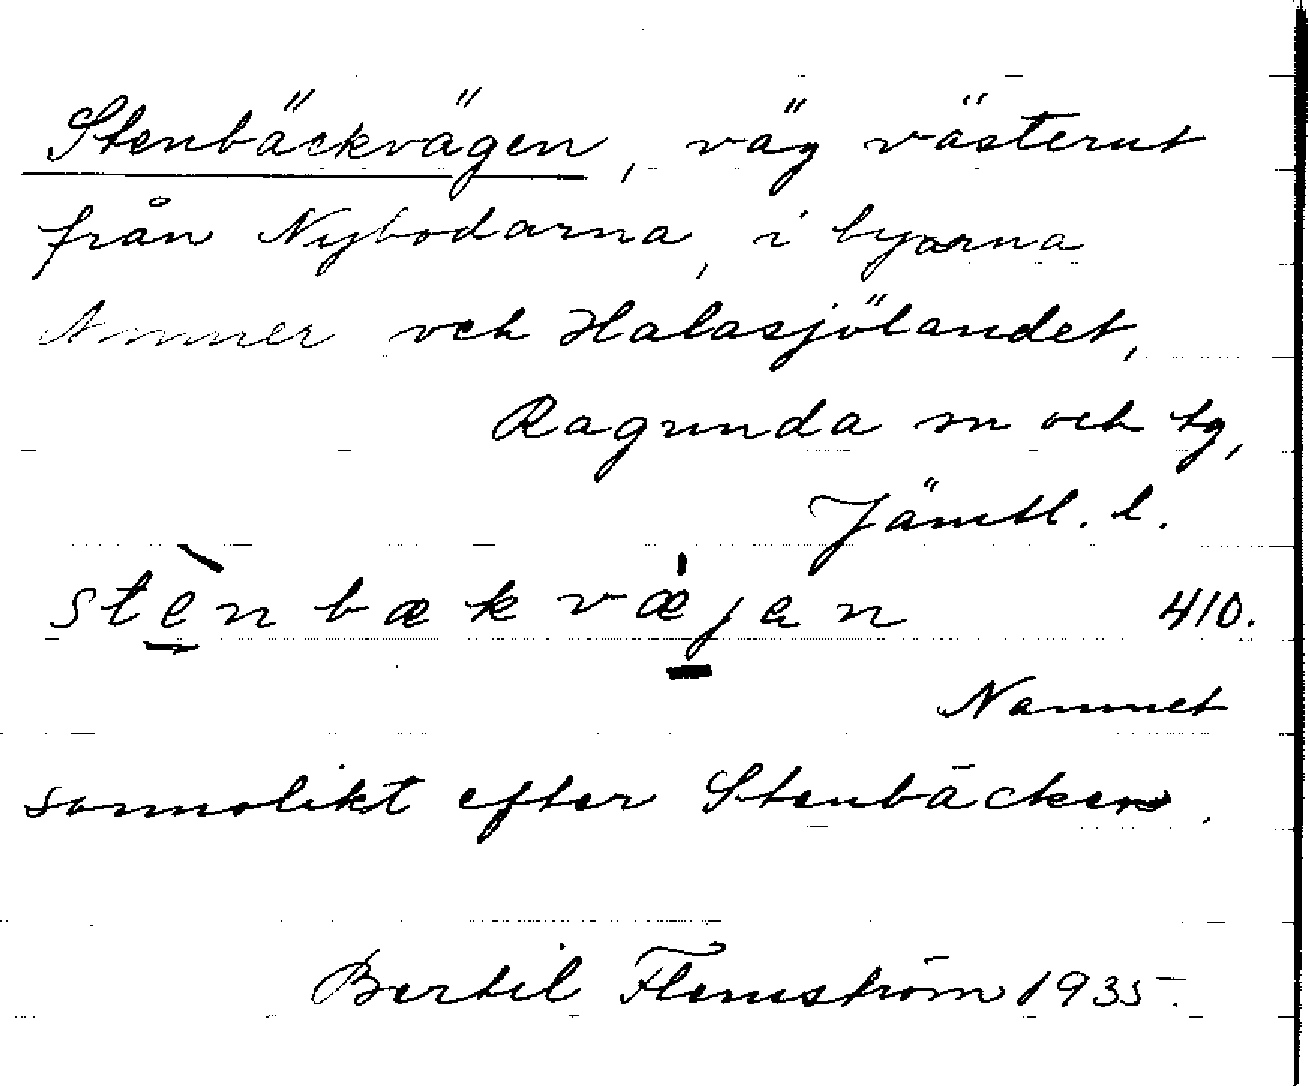 Stenbäckvägen, väg västerut
från Nybodarna, i byarna
Ammer och Halasjölandet,
Ragunda sn och tg,
Jämtl. l.
stènbækvæjen 410.
Namnet
sannolikt efter Stenbäcken.
Bertil Flemström 1935.